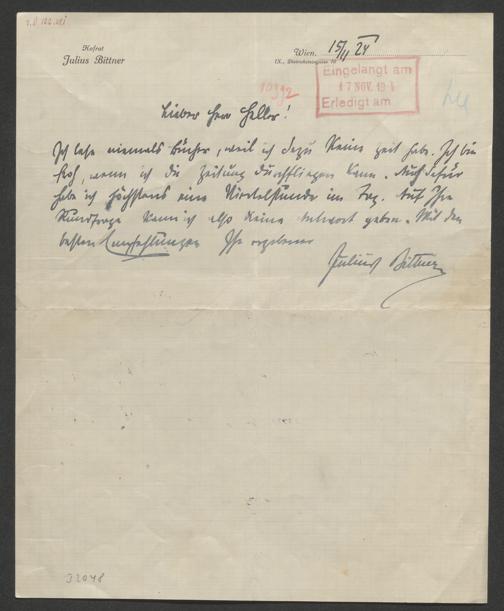 Hofrat
Julius Bittner
Wien, 15/11 24
IX.,
Eingelangt am
17 NOV. 19
Erledigt am
Lieber Herr Heller!
Ich lese niemals Bücher, weil ich dazu keine Zeit habe. Ich bin
froh, wenn ich die Zeitung durchfliegen kann. Auch dafür
habe ich höchstens eine Viertelstunde im Tag. Auf Ihre
Rundfrage kann ich also keine Antwort geben. Mit den
besten Empfehlungen Ihr ergebener
Julius Bittner
32048